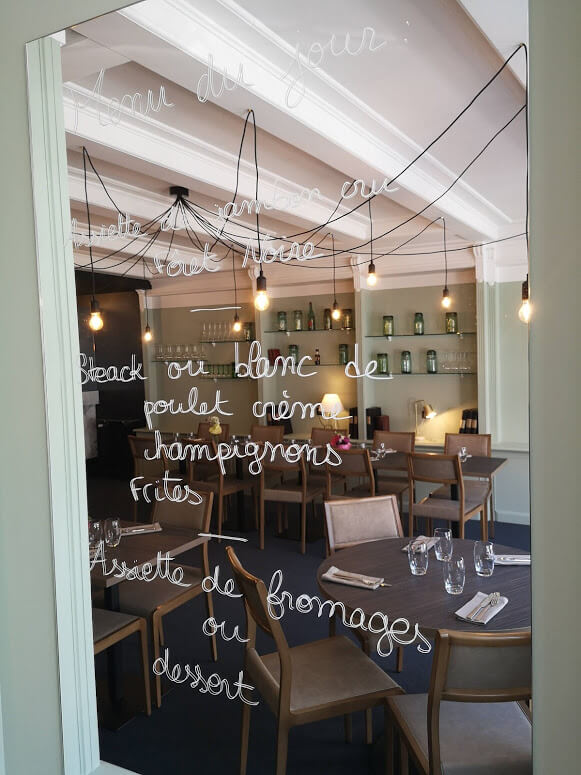 Menu du jour :
Assiette de jambon cru
Forêt Noire
Steack ou blanc de
poulet crème
champignons
Frites
Assiette de fromages
ou
dessert